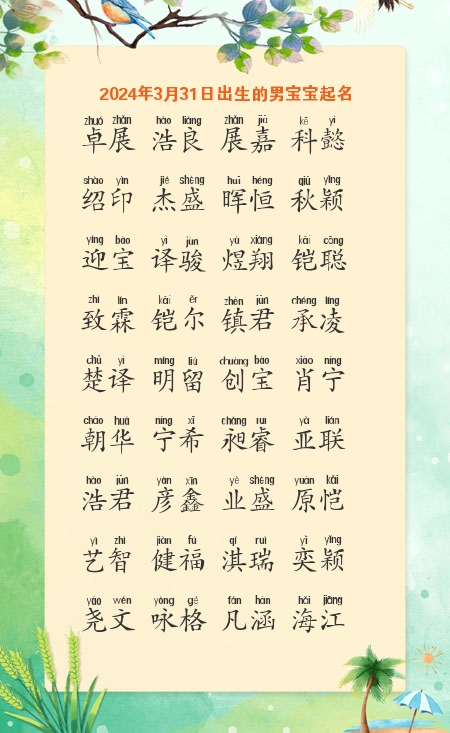 2024年3月31日出生的男宝宝起名
zhuó zhǎn hào liáng zhǎn jiā kē yì
卓展 浩良 展嘉 科懿
shào yìn jié shèng huī héng qiū yǐng
绍印 杰盛 晖恒 秋颖
yíng bǎo yì jùn yù xiáng kǎi cōng
迎宝 译骏 煜翔 铠聪
zhì lín kǎi ěr zhèn jūn chéng líng
致霖 铠尔 镇君 承凌
chǔ yì míng liú chuàng bǎo xiào níng
楚译 明留 创宝 肖宁
cháo huá níng xī chǎng ruì yà lián
朝华 宁希 昶睿 亚联
hào jūn yàn xīn yè shèng yuán kǎi
浩君 彦鑫 业盛 原恺
yì zhì jiàn fú qí ruì yì yǐng
艺智 健福 淇瑞 奕颖
yáo wén yǒng gé fán hán hǎi jiāng
尧文 咏格 凡涵 海江